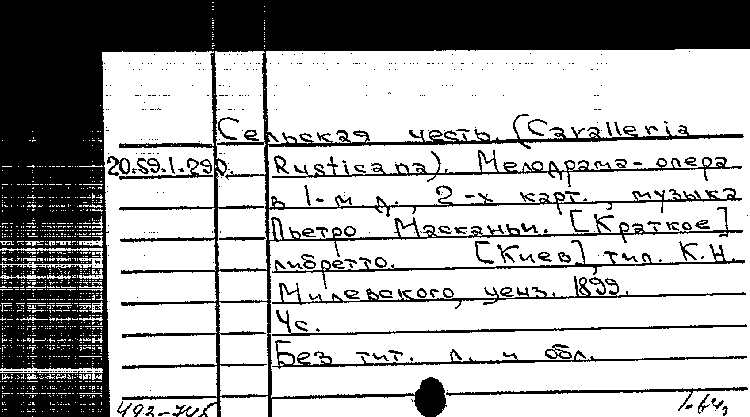 Сельская честь. (Cavalleria
20.59.1.290. Rusticana). Мелодрама-опера
в 1-м д., 2-х карт., музыка
Пьетро Масканьи. [Краткое]
либретто. [Киев], тип. К.Н.
Милевского, ценз. 1899.
4с.
Без тит. л. и обл.